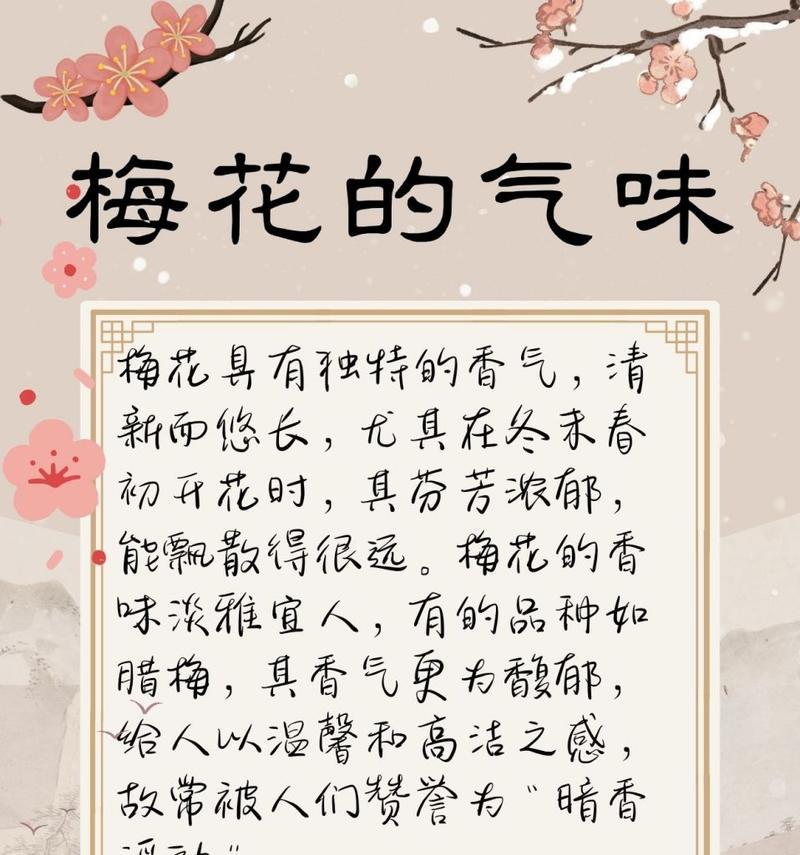 梅花的气味
梅花具有独特的香气，清
新而悠长，尤其在冬末春
初开花时，其芬芳浓郁，
能飘散得很远。梅花的香
味淡雅宜人，有的品种如
腊梅，其香气更为馥郁，
给人以温馨和高洁之感，
故常被人们赞誉为“暗香